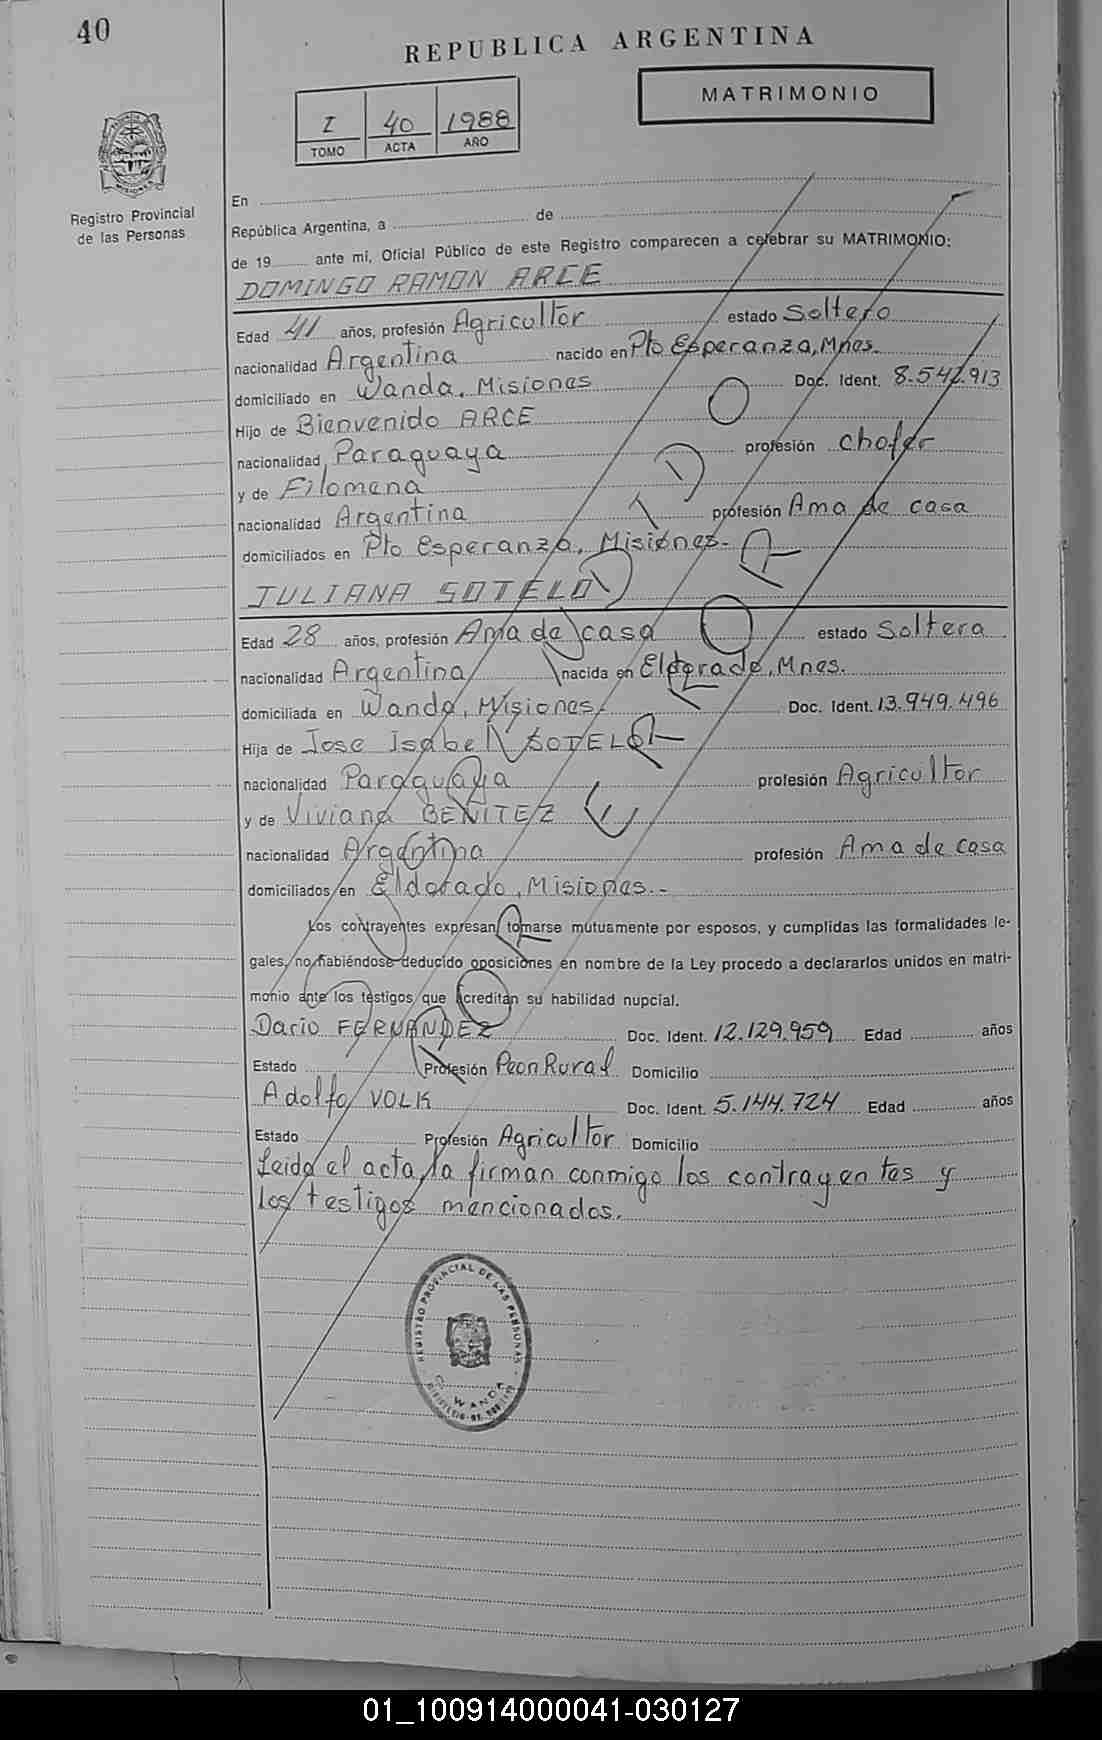 40
REPUBLICA ARGENTINA
MATRIMONIO
I 40 1988
TOMO ACTA AÑO
Registro Provincial
de las Personas
En
República Argentina, a de
de 19 ante mi, Oficial Público de este Registro comparecen a celebrar su MATRIMONIO:
DOMINGO RAMON ARCE
Edad 41 años, profesión Agricultor estado Soltero
nacionalidad Argentina nacido en Pto Esperanza, Mnes.
domiciliado en Wanda, Misiones Doc. Ident. 8.542.913
Hijo de Bienvenido ARCE
nacionalidad Paraguaya profesión chofer
y de Filomena
nacionalidad Argentina profesión Ama de casa
domiciliados en Pto Esperanza, Misiones-
JULIANA SOTELO
Edad 28 años, profesión Ama de casa estado Soltera
nacionalidad Argentina nacida en Eldorado, Mnes.
domiciliada en Wanda, Misiones. Doc. Ident. 13.949.496
Hija de Jose Isabel SOTELO
nacionalidad Paraguaya profesión Agricultor
y de Viviana BENITEZ
nacionalidad Argentina profesión Ama de casa
domiciliados en Eldorado, Misiones.-
Los contrayentes expresan tomarse mutuamente por esposos, y cumplidas las formalidades le-
gales, no habiéndose deducido oposiciones en nombre de la Ley procedo a declararlos unidos en matri-
monio ante los testigos que acreditan su habilidad nupcial.
Dario FERNANDEZ Doc. Ident. 12.129.959 Edad años
Estado Profesión Peon Rural Domicilio
Adolfo VOLK Doc. Ident. 5.144.724 Edad años
Estado Profesión Agricultor Domicilio
Leida el acta, la firman conmigo los contrayentes y
los testigos mencionados.
REGISTRO PROVINCIAL DE LAS PERSONAS
WANDA
01_100914000041-030127